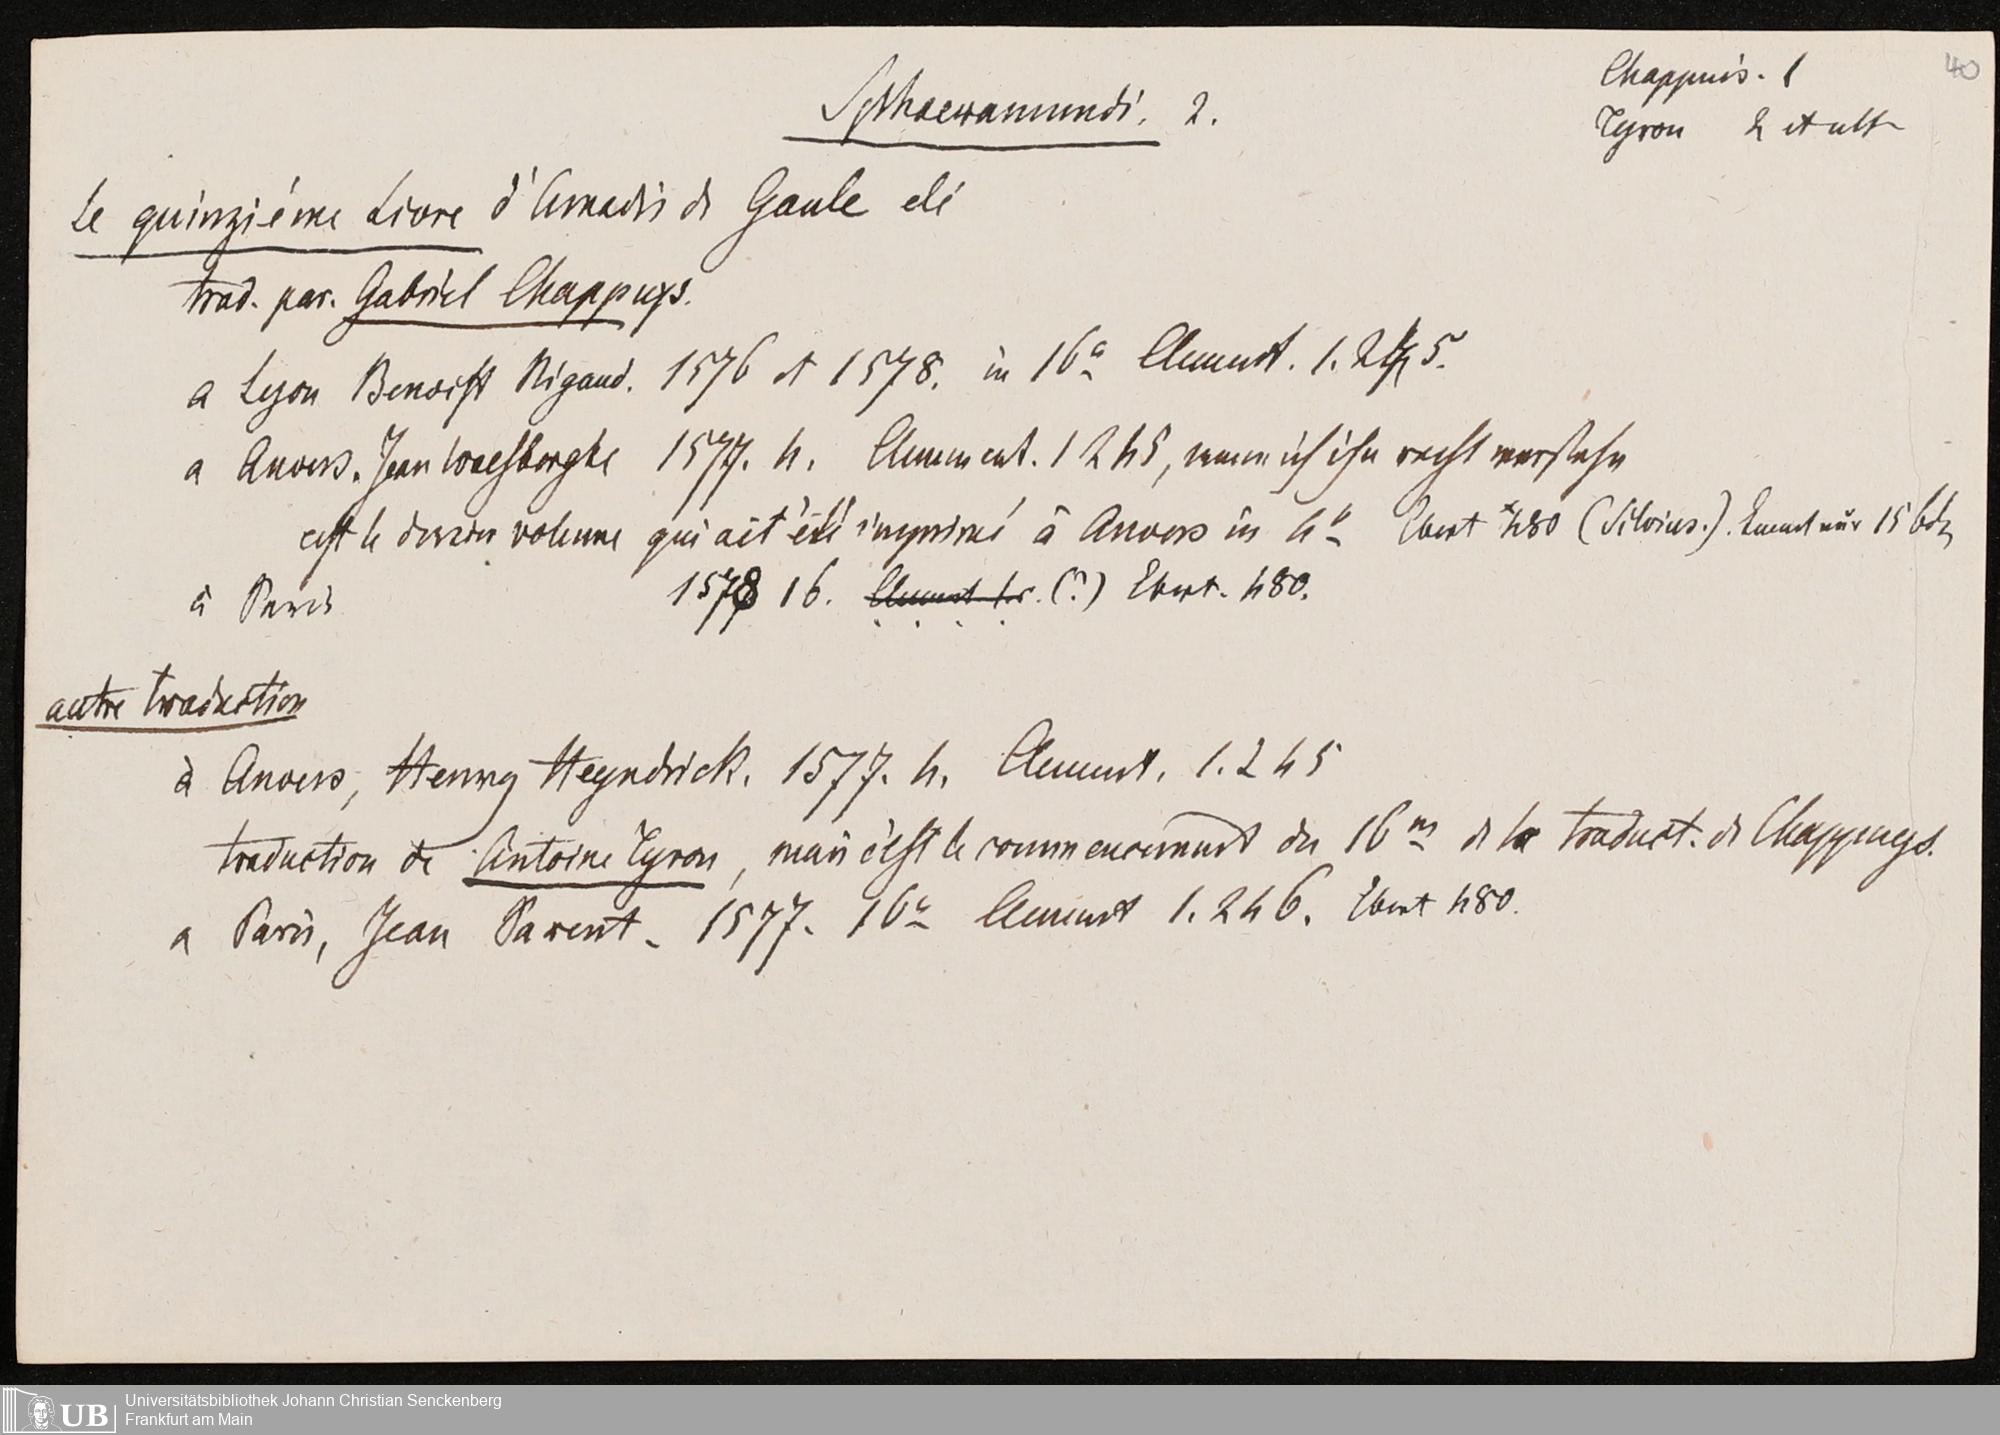 Sphaeramundi. 2.
Chappuis. 1
Tyron 2 et ult
40
Le quinziéme Livre d'Amadis d Gaule
trad. par. Gabriel Chappuys.
a Lyon Benoist Rigaud. 1576 et 1578. in 16° Clement. 1. 245.
a Anvers. Jean Waesberghe 1577. 4. Clement. 1 245, wenn ich ihn recht verstehe
c'est le dernier volume qui ait été imprimé à Anvers in 4° Ebert 480 (Silvius.). kennt nur 15 bd
à Paris 1578 16. Clement 1. (?) Ebert. 480.
autre traduction
à Anvers, Henry Heyndrick. 1577. 4. Clement. 1. 245
traduction de Antoine Tyron, mais c'est le commencement du 16m d la traduct. d Chappuys.
a Paris, Jean Parent. 1577. 16° Clement 1. 246. Ebert 480.
UB
Universitätsbibliothek Johann Christian Senckenberg
Frankfurt am Main